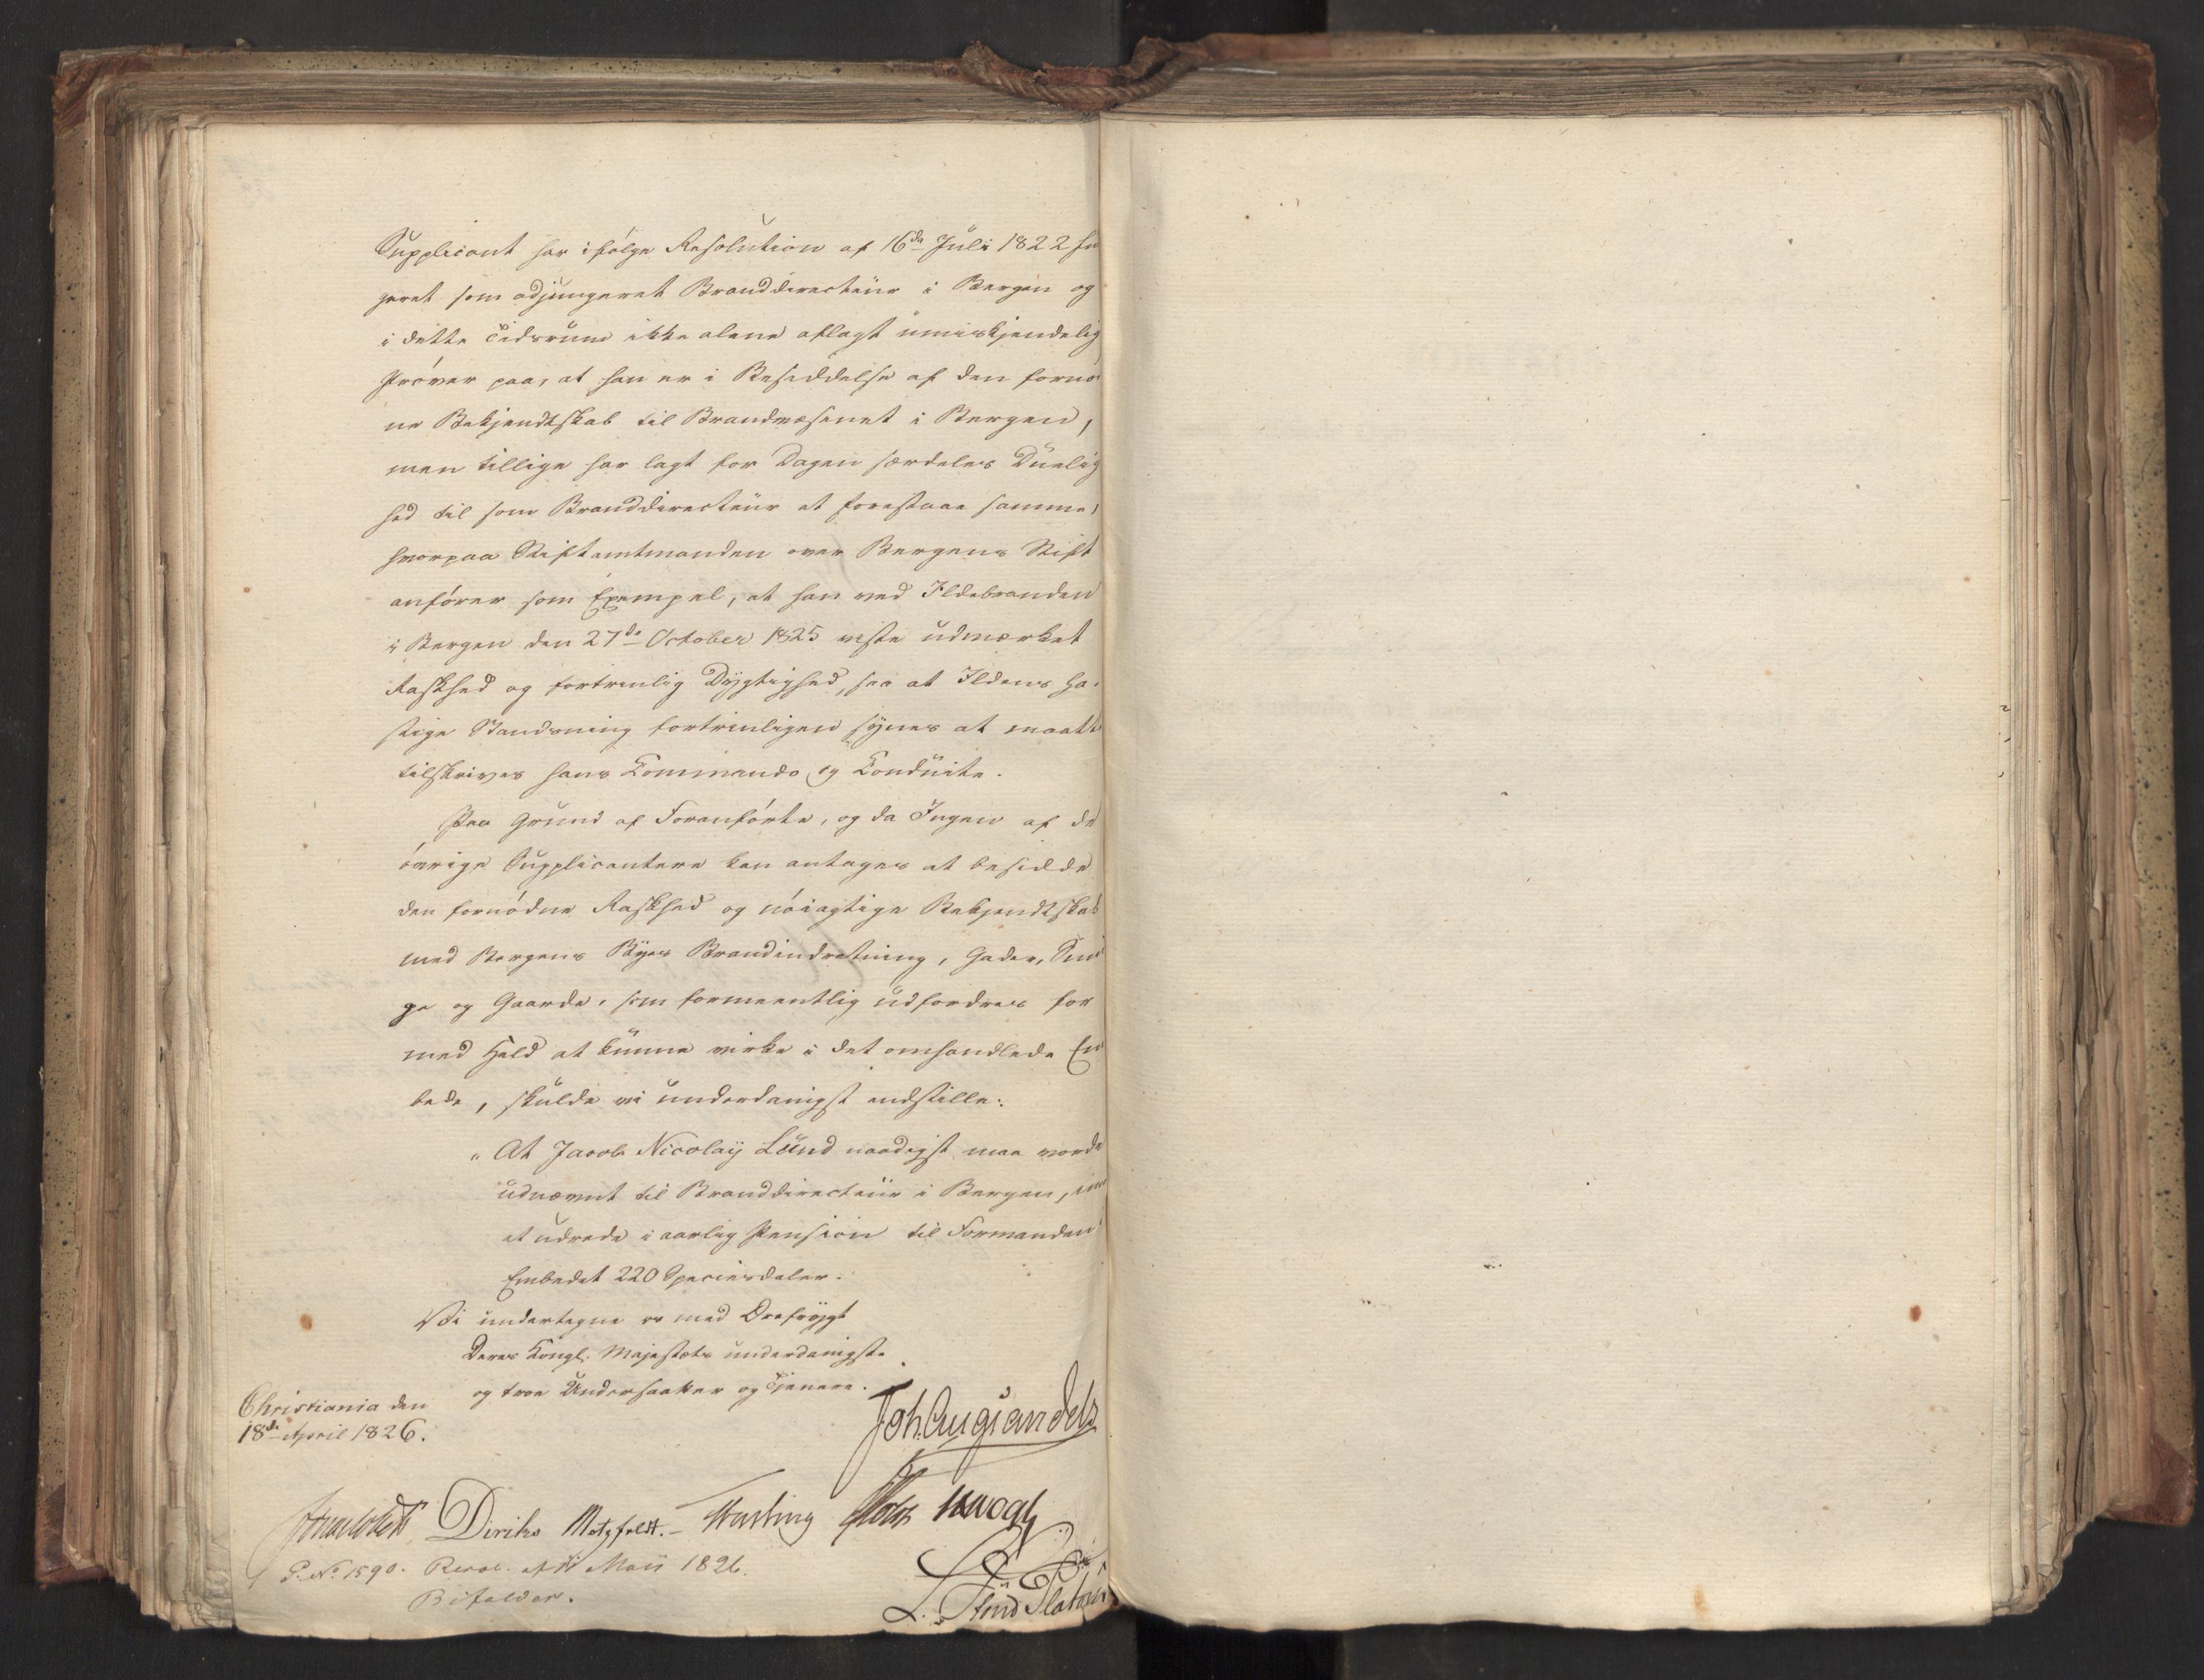 Supplicant har i følge Resolution af 16de Juli 1822 fun
geret som adjungeret Branddirecteur i Bergen og
i dette Tidsrum ikke alene aflagt umiskjendelig
Prøver paa, at han er i Besiddelse af den fornød
ne Bekjendtskab til Brandvæsenet i Bergen,
men tillige har lagt for Dagen særdeles Duelig
hed til som Branddirecteur at forestaae samme,
hvorpaa Stiftamtmanden over Bergens Stift
anfører som Exempel, at han ved Ildebranden
i Bergen den 27de October 1825 viste udmærket
Raskhed og fortrinlig Dygtighed, saa at Ildens ha-
stige Standsning fortrinligen synes at maatte
tilskrives hans Commando og Conduite.
Paa Grund af Foranførte, og da Ingen af de
øvrige Supplicantere kan antages at besidde
den fornødne Raskhed og nøiagtige Bekjendtskab
med Bergens Byes Brandindretning, Gader, Smu
ge og Gaarde, som formeentlig udfordres for
med Held at kunne virke i det omhandlede Em
bede, skulde vi underdanigst indstille:
"At Jacob Nicolay Lund naadigst maa vorde
udnævnt til Branddirecteur i Bergen, imod
at udrede i aarlig Pension til Formanden i
Embedet 220 Speciesdaler.
Vi undertegne os med Ærefrygt
Deres Kongl. Majestæts underdanigste
og troe Undersaatter og Tjenere.
Christiania den
18de April 1826.
Joh. Aug. Sandels
Diriks Motzfeldt. Fasting Holst
L. Stoud Platou
P. No. 1590. Resol. af 11 Maii 1826.
Bifaldes.